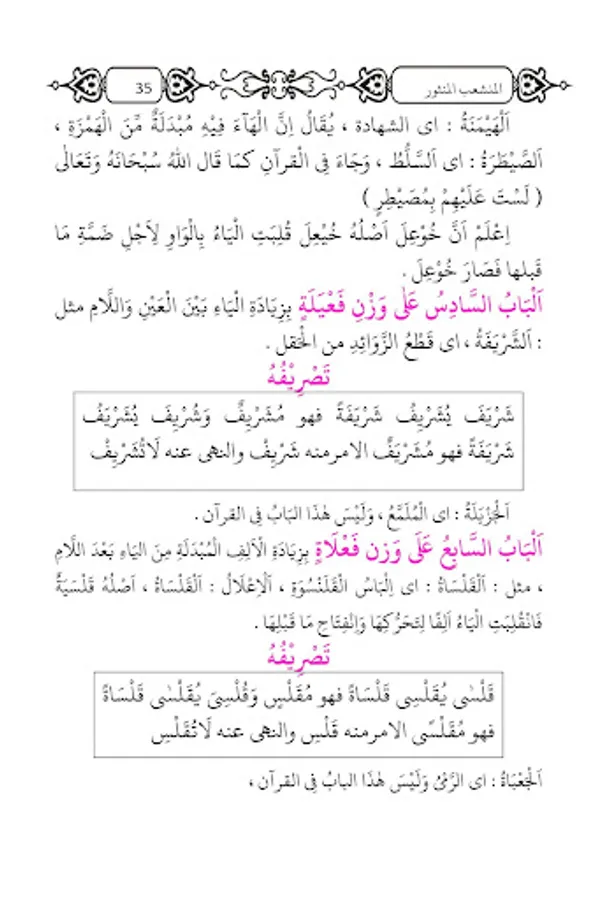 المنشعب المنثور
35
اَلْهَيْمَنَةُ : اى الشهادة ، يُقَالُ اِنَّ الْهَآءَ فِيْهِ مُبْدَلَةٌ مِّنَ الْهَمْزَةِ ،
اَلصَّيْطَرَةُ : اى اَلسَّلُّطُ ، وَجَاءَ فِى الْقرآنِ كمَا قَال اللهُ سُبْحَانَهُ وَتَعَالٰى
( لَسْتَ عَلَيْهِمْ بِمُصَيْطِرٍ )
اِعْلَمْ اَنَّ خُوْعِلَ اَصْلُهُ خُيْعِلَ قُلِبَتِ الْيَاءُ بِالْوَاوِ لِاَجْلِ ضَمَّةِ مَا
قَبلها فَصَارَ خُوْعِلَ .
اَلْبَابُ السَّادِسُ عَلٰى وَزْنِ فَعْيَلَةٍ بِزِيَادَةِ الْيَاءِ بَيْنَ الْعَيْنِ وَاللَّامِ مثل
: اَلشَّرْيَفَةُ ، اى قَطْعُ الزَّوَائِدِ من الْحَقل .
تَصْرِيْفُهُ
شَرْيَفَ يُشَرْيِفُ شَرْيَفَةً فهو مُشَرْيِفٌ وَشُرْيِفَ يُشَرْيَفُ
شَرْيَفَةً فهو مُشَرْيَفٌ الامرمنه شَرْيِفْ والنهى عنه لَاتُشَرْيِفْ
اَلْجَزْيَلَةُ : اى الْمُلَمَّعُ ، وَلَيْسَ هٰذَا البَابُ فِى القرآن .
اَلْبَابُ السَّابِعُ عَلَى وَزن فَعْلَاةٍ بِزِيَادَةِ الْاَلِفِ الْمُبْدَلَةِ مِنَ اليَاءِ بَعْدَ اللَّامِ
، مثل : اَلْقَلْسَاةُ : اى اِلْبَاسُ الْقَلَنْسُوَةِ ، اَلْاِعْلَالُ : اَلْقَلْسَاةُ ، اَصْلُهُ قَلْسَيَةٌ
فَانْقُلِبَتِ الْيَاءُ اَلِفًا لِتَحَرُّكِهَا وَاِنْفِتَاحِ مَا قَبْلِهَا .
تَصْرِيْفُهُ
قَلْسٰى يُقَلْسِى قَلْسَاةً فهو مُقَلْسٍ وَقُلْسِىَ يُقَلْسٰى قَلْسَاةً
فهو مُقَلْسًى الامرمنه قَلْسِ والنهى عنه لَاتُقَلْسِ
اَلْجَعْبَاةُ : اى الرَّمْىُ وَلَيْسَ هٰذَا البابُ فِى القرآن ،